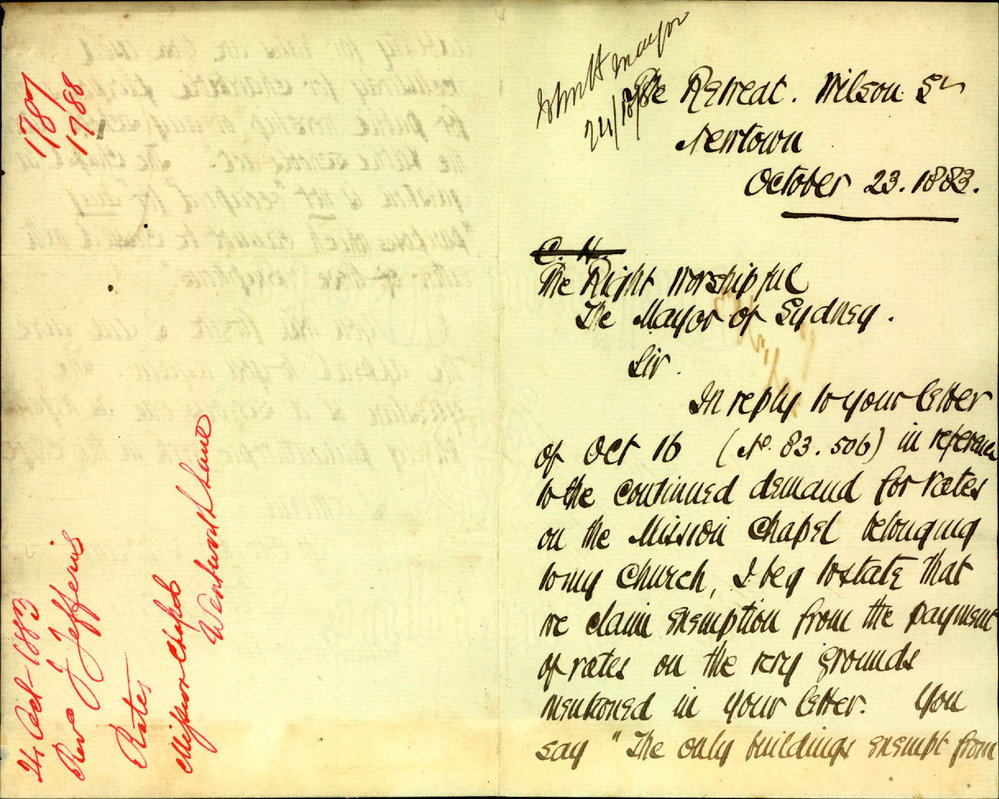 1787
1788
24 Oct 1883
Rev J Jefferis
Rates
Mission Chapel
Wentworth Lane
John H mayor
24/10/83
The Retreat. Wilson St
Newtown
October 23. 1883.
C. H.
The Right Worshipful
The Mayor of Sydney.
Sir.
In reply to your letter
of Oct 16 (No. 83.506) in reference
to the continued demand for rates
on the Mission Chapel belonging
to my Church, I beg to state that
we claim exemption from the payment
of rates on the very grounds
mentioned in your letter. You
say "The only buildings exempt from